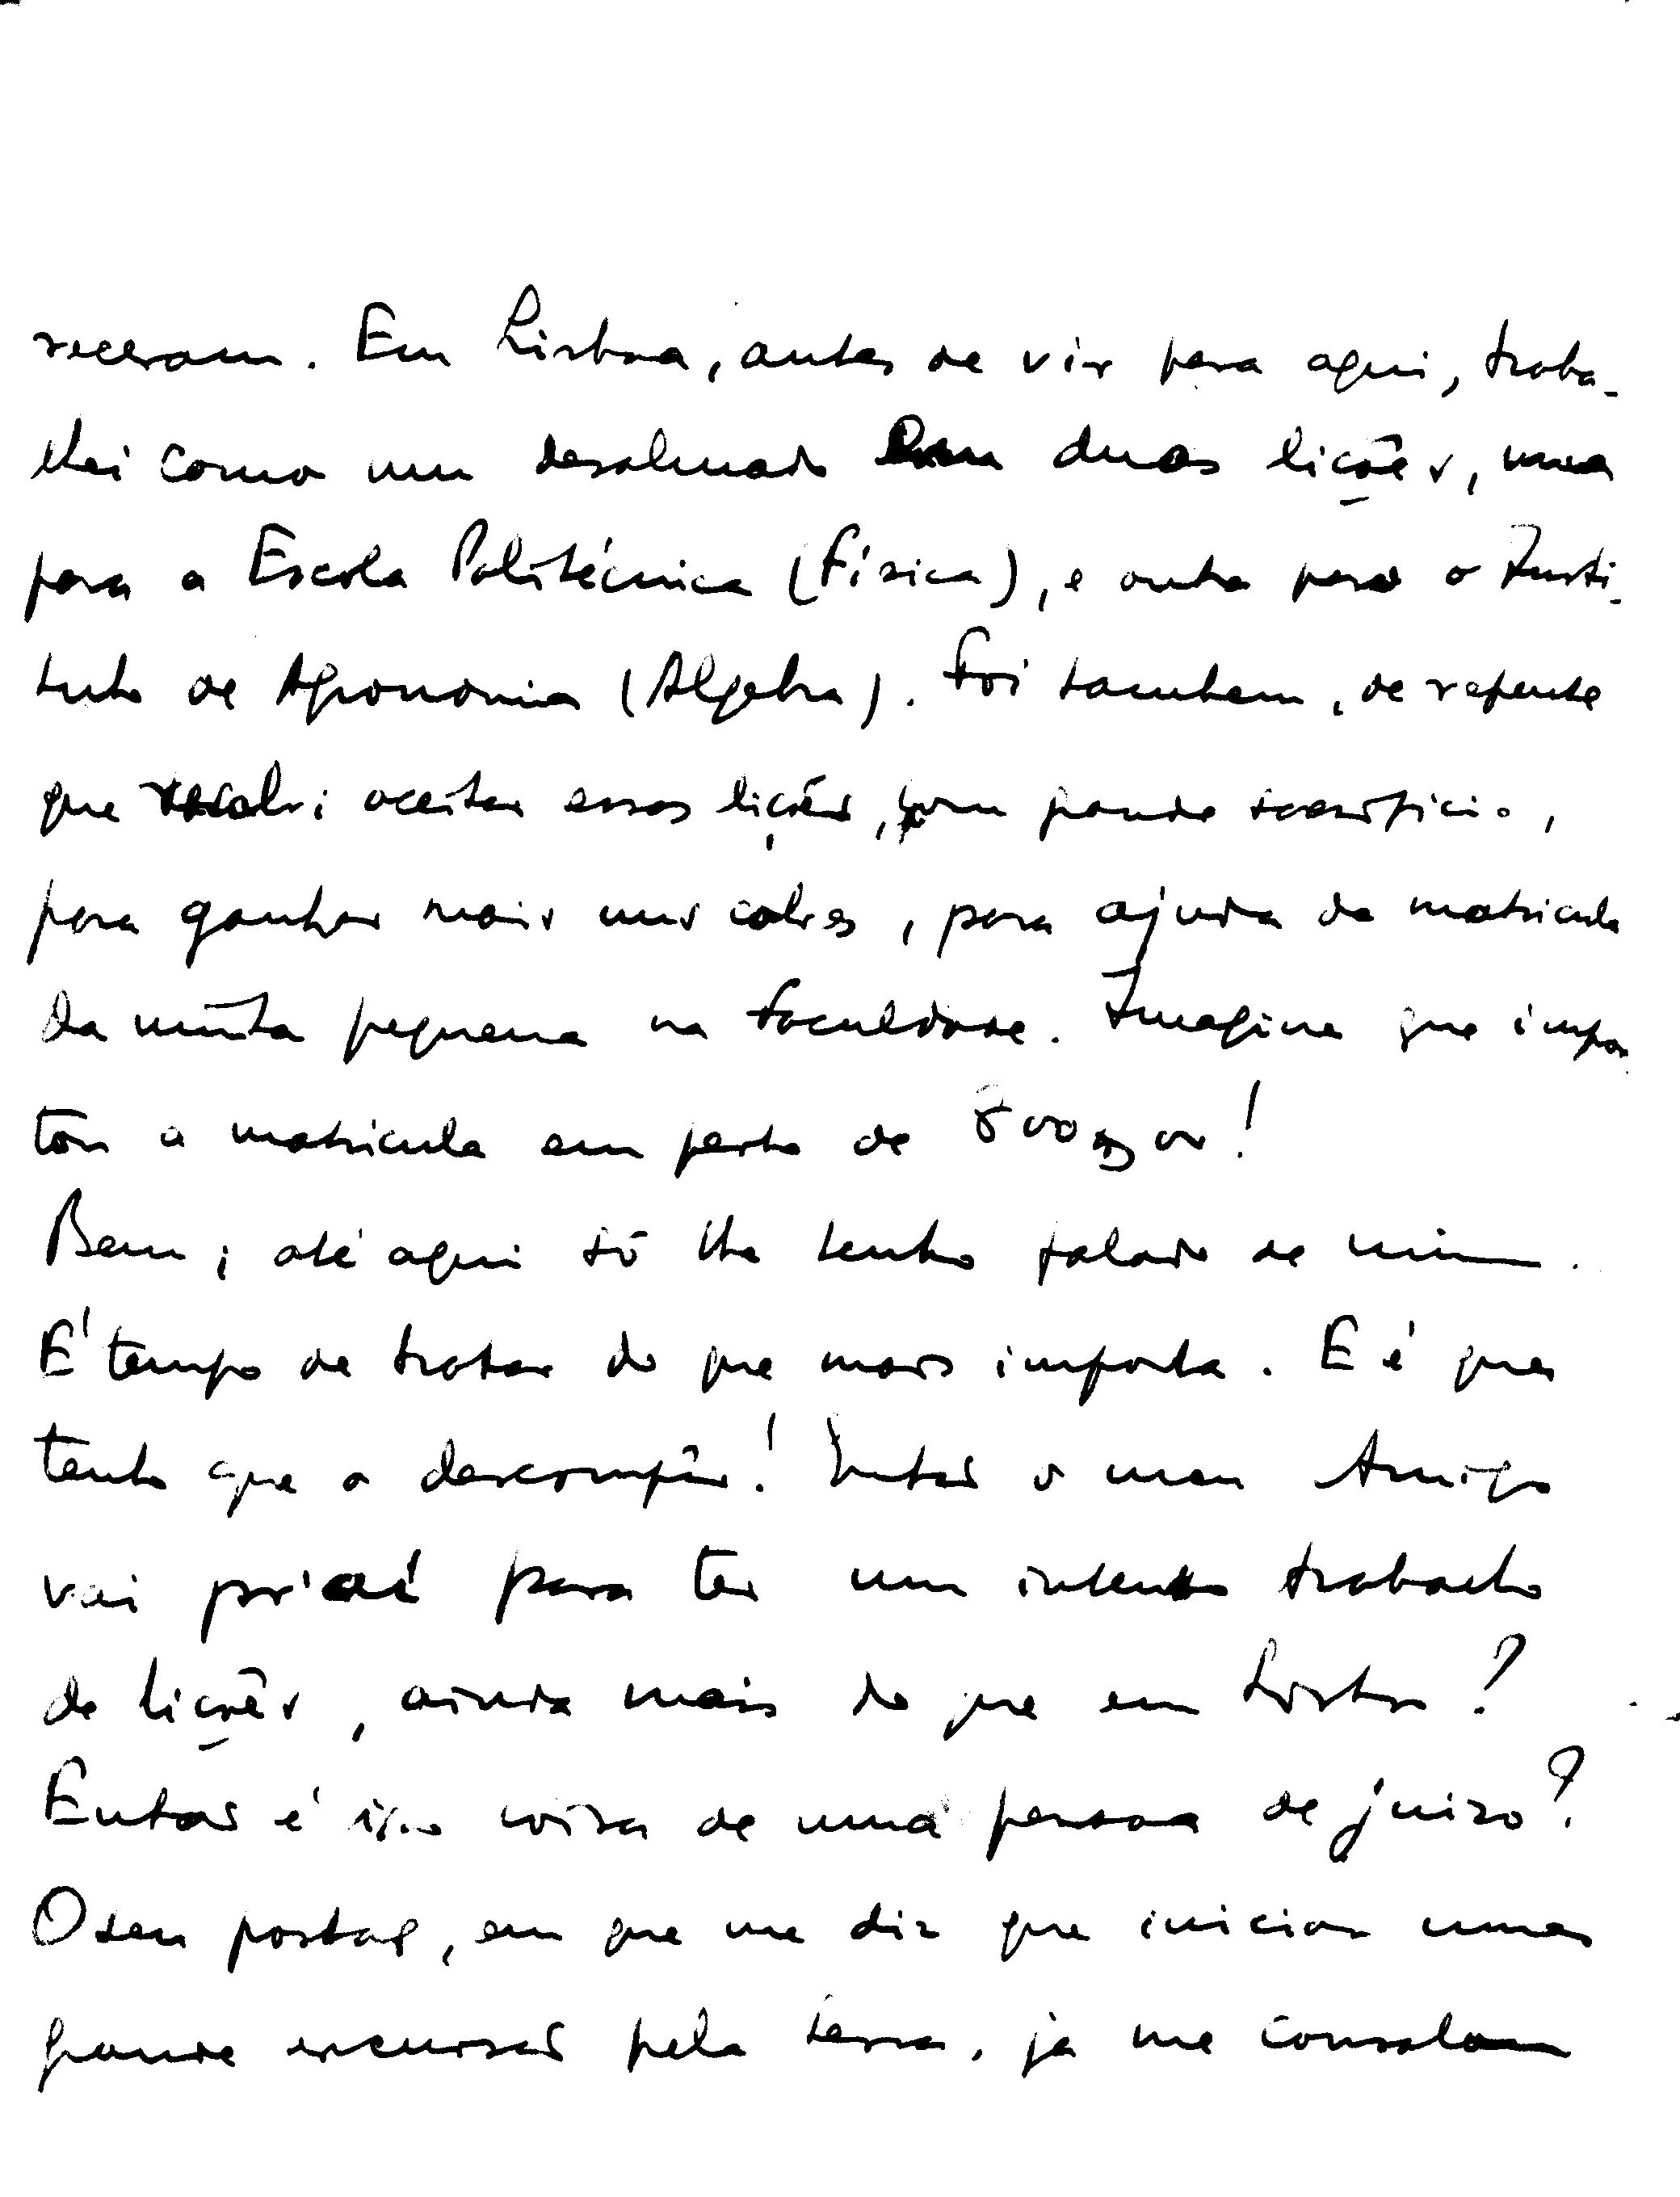 receram. Em Lisboa, antes de vir para aqui, traba-
lhei como um desalmado em duas lições, uma
para a Escola Politécnica (Física), e outra para o Insti-
tuto de Agronomia (Algebra). Foi tambem, de repente
que resolvi aceitar essas lições, com grande sacrificio,
para ganhar mais uns cobres, para ajuda da matricula
da minha pequena na Faculdade. Imagine que impor
tou a matricula em perto de 800$00!
Bem; até aqui só lhe tenho falado de mim.
E' tempo de tratar do que mais importa. E é que
tenho que o descompôr! Então o meu Amigo
vai pr'aí para ter um intenso trabalho
de lições, ainda mais do que em Lisboa?
Então é isso coisa de uma pessoa de juizo?
O seu postal, em que me diz que iniciou uma
grande excursão pela terra, já me consolou